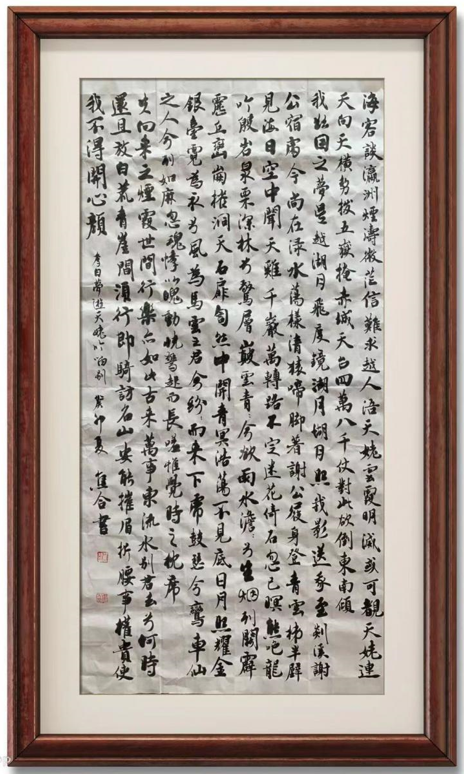 海客談瀛洲煙濤微茫信難求越人語天姥雲霞明滅或可觀天姥連
天向天橫勢拔五嶽掩赤城天台四萬八千仗對此欲倒東南傾
我欲因之夢吳越湖月飛度鏡湖月湖月照我影送我至剡溪謝
公宿處今尚在淥水蕩樣清猿啼脚著謝公屐身登青雲梯半壁
見海日空中聞天雞千巖萬轉路不定迷花倚石忽已暝熊咆龍
吟殷岩泉栗深林兮驚層巔雲青兮欲雨水澹兮生烟列闕霹
靂丘巒崩摧洞天石扉訇然中開青冥浩蕩不見底日月照耀金
銀臺霓為衣兮風為馬雲之君兮紛而來下虎鼓瑟兮鸞車仙
之人兮列如麻忽魂悸以魄動怳驚起而長嗟惟覺時之枕席
失向來之煙霞世間行樂亦如此古來萬事東流水別君去兮何時
還且放白鹿青崖間須行即騎訪名山安能摧眉折腰事權貴使
我不得開心顏 李白夢遊天姥吟留別 癸卯夏 合書